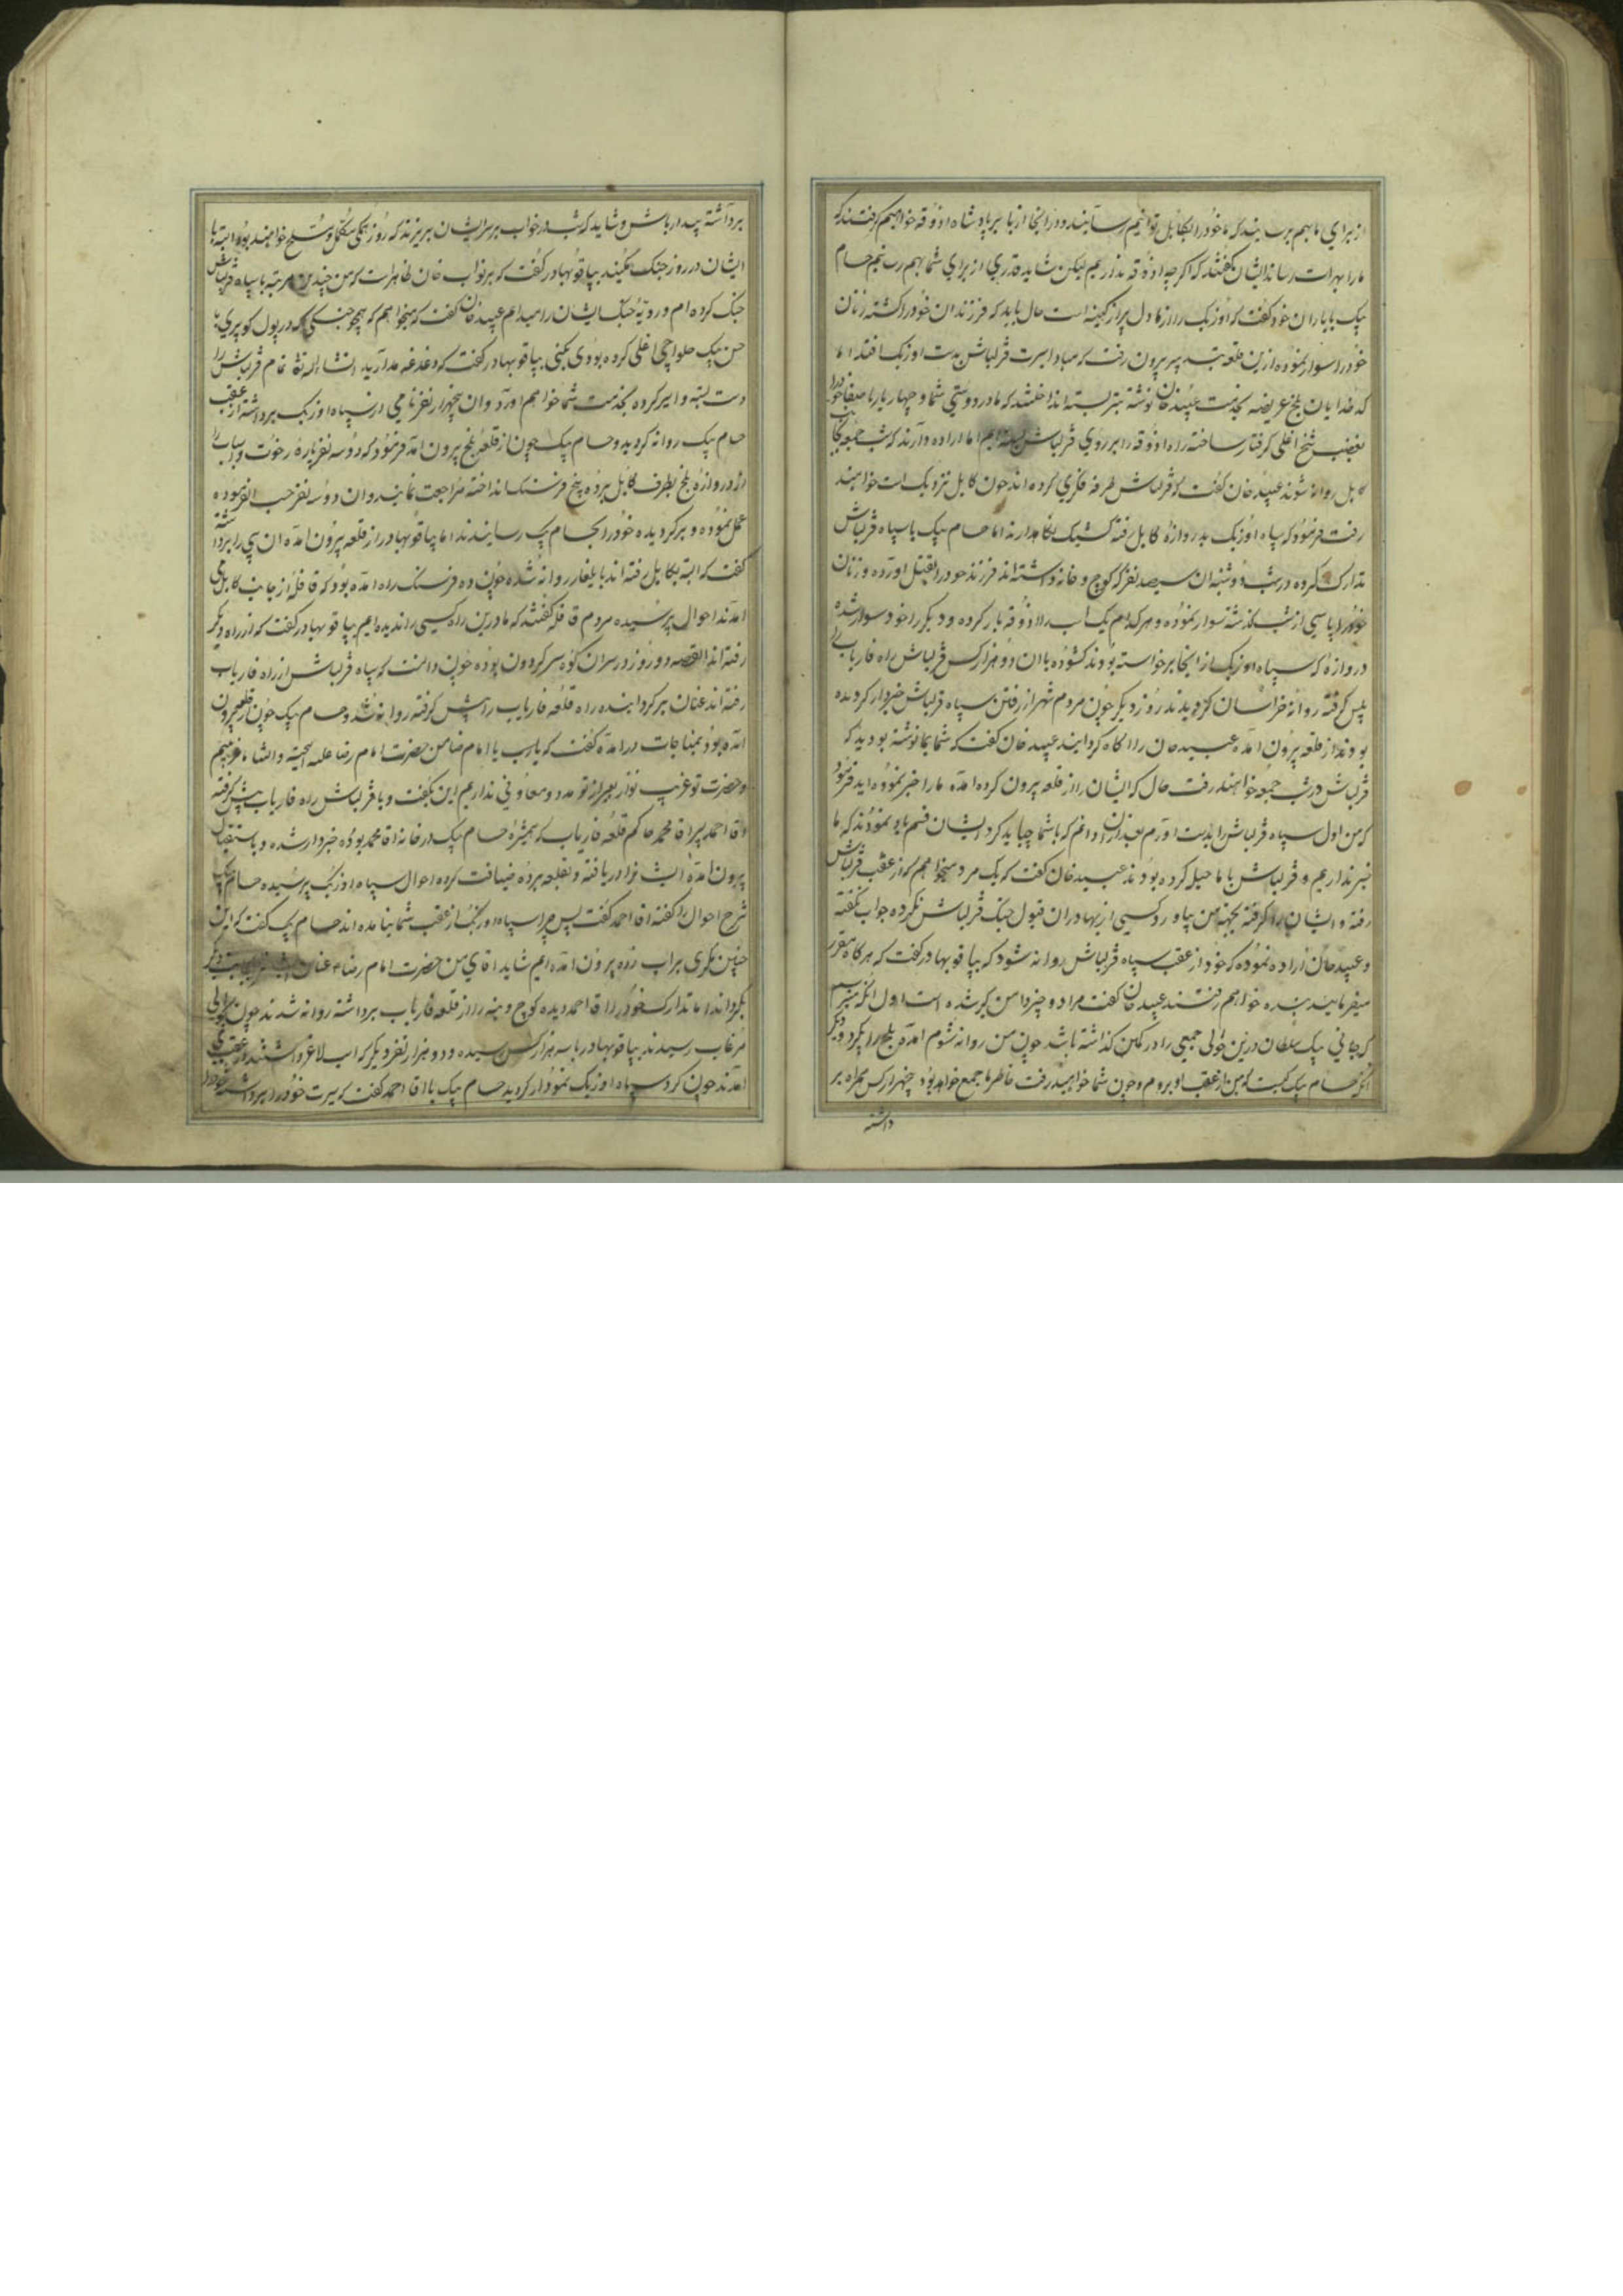 از برای ما بهم برسانید که ما خود را بکابل توانیم رسانید و در انجا از بابر پادشاه اذوقه خواهیم گرفت که
ما را بهرات رساند ایشان گفتند که اگر چه اذوقه نداریم لیکن شاید قدری از برای شما بهم رسانیم حسام
بیک با یاران خود گفت که اوزبک را از ما دل پر از کینه است حال باید که فرزندان خود را کشته زنان
خود را سوار نموده ازین قلعه بدر بیرون رفت که مبادا اسیرت قزلباش بدست اوزبک افتد اما
کدخدایان بلخ عریضه بخدمت عبیدخان نوشته بتیر بسته انداختند که ما در دوستی شما و چهار یار با صفا خود را
بغضب شیخ اغلی گرفتار ساخته راه اذوقه را بر روی قزلباش بسته ایم اما اراده دارند که شب جمعه بجانب
کابل روانه شوند عبیدخان گفت که قزلباش طرفه فکری کرده اند چون کابل نزدیک است خواهند
رفت فرمود که سپاه اوزبک بدروازه کابل رفته کشیک نگاهدارند اما حسام بیک با سپاه قزلباش
تدارک کرده در شب دوشنبه ان سیصد نفر که کوچ و خانه داشته اند فرزند خود را بقتل اورده و زنان
خود را پاسی از شب گذشته سوار نموده و هر کدام یک اسب را اذوقه بار کرده و دیگر را خود سوار شده
دروازه که سپاه اوزبک از انجا برخواسته بودند کشوده با ان دو هزار کس قزلباش راه فاریاب را
پیش گرفته روانه خراسان گردیدند روز دیگر چون مردم شهر از رفتن سپاه قزلباش خبردار گردیده
بودند از قلعه بیرون امده عبیدخان را اگاه گردانیدند عبیدخان گفت که شما بما نوشته بودید که
قزلباش در شب جمعه خواهند رفت حال که ایشان را از قلعه بیرون کرده امده ما را خبر نموده اید فرمود
که من اول سپاه قزلباش را بدست اورم بعد از ان دانم که با شما چه باید کرد ایشان قسم یاد نمودند که ما
خبر نداریم و قزلباش با ما حیل کرده بودند عبیدخان گفت که یک مرد میخواهم که از عقب قزلباش
رفته و ایشان را گرفته بجهة من بیاورد کسی از بهادران قبول جنگ قزلباش نکرده جواب نگفته
و عبیدخان اراده نموده که خود از عقب سپاه قزلباش روانه شود که بیاقو بهادر گفت که هر گاه مقرر
میفرمایید بنده خواهم رفت عبیدخان گفت مرا دو چیز دامن گیر شده است اول انکه میترسم
که جانی بیک سلطان درین حوالی جمعی را در کمین گذاشته باشد چون من روانه شوم امده بلخ را بگیرد و دیگر
انکه حسام بیک کیست که من از عقب او بروم و چون شما خواهید رفت خاطر ما جمع خواهد بود پنجهزار کس همراه بر
داشته
برداشته بیدار باش و شاید که شب در خواب بر سر ایشان بریزند که روز همگی مکمل و مسلح خواهند بود البته با
ایشان در روز جنگ مکنید بیاقو بهادر گفت که بر نواب خان ظاهر است که من چندین مرتبه با سپاه قزلباش
جنگ کرده ام و رویه جنگ ایشان را میدانم عبیدخان گفت که میخواهم که همچو جنگی که در پول کوپری با
حسن بیک حلواچی اغلی کرده بودی بکنی بیاقو بهادر گفت که دغدغه مدارید انشا الله تعالی تمام قزلباش را
دست بسته و اسیر کرده بخدمت شما خواهم اورد و ان پنجهزار نفر نامی از سپاه اوزبک برداشته از عقب
حسام بیک روانه گردید و حسام بیک چون از قلعه بلخ بیرون امد فرموده که دو سه نفر پاره رخوت و اسباب را
از دروازه بلخ بطرف کابل برده پنج فرسنگ انداخته مراجعت نمایند و ان دو سه نفر حسب الفرموده
عمل نموده و برگردیده خود را بحسام بیک رسانیدند اما بیاقو بهادر از قلعه بیرون امده ان پی را برداشته
گفت که البته بکابل رفته اند بایلغار روانه شده چون ده فرسنگ راه امده بود که قافله از جانب کابل می
امدند احوال پرسیده مردم قافله گفتند که ما درین راه کسی را ندیده ایم بیاقو بهادر گفت که از راه دیگر
رفته اند القصه دو روز در سران کوه سرگردون بوده چون دانست که سپاه قزلباش از راه فاریاب
رفته اند عنان برگردانیده راه قلعه فاریاب را پیش گرفته روانه شد و حسام بیک چون از قلعه بیرون
امده بود بمناجات درامده گفت که یا رب یا امام ضامن حضرت امام رضا علیه التحیة و الثناء غریبیم
و حضرت تو غریب نواز بغیر از تو مدد و معاونی نداریم این بگفت و با قزلباش راه فاریاب پیش گرفته
و اقا احمد پسر اقا محمد حاکم قلعه فاریاب که همشیره حسام بیک در خانه اقا محمد بوده خبردار شده و باستقبال
بیرون امده ایشان را دریافته و بقلعه برده ضیافت کرده احوال سپاه اوزبک پرسیده حسام بیک
شرح احوال را گفته اقا احمد گفت پس چرا سپاه اوزبک از عقب شما نیامده اند حسام بیک گفت که این
چنین مکری بر اب زده بیرون امده ایم شاید اقای من حضرت امام رضا ع عنان ایشان را بجانب دیگر
بگرداند اما تدارک خود را اقا احمد دیده کوچ و بنه را از قلعه فاریاب برداشته روانه شدند چون بحوالی
مرغاب رسیدند بیاقو بهادر با سه هزار کس رسیده و دو هزار نفر دیگر که اسب لاغر داشتند از عقب می
امدند چون گرد سپاه اوزبک نمودار گردید حسام بیک با اقا احمد گفت که سیرت خود را برداشته خود را